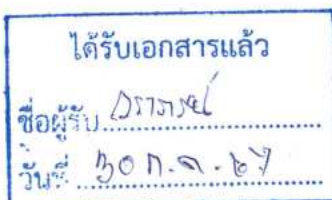 ได้รับเอกสารแล้ว
ชื่อผู้รับ
วันที่ 30 ก.ค. 67